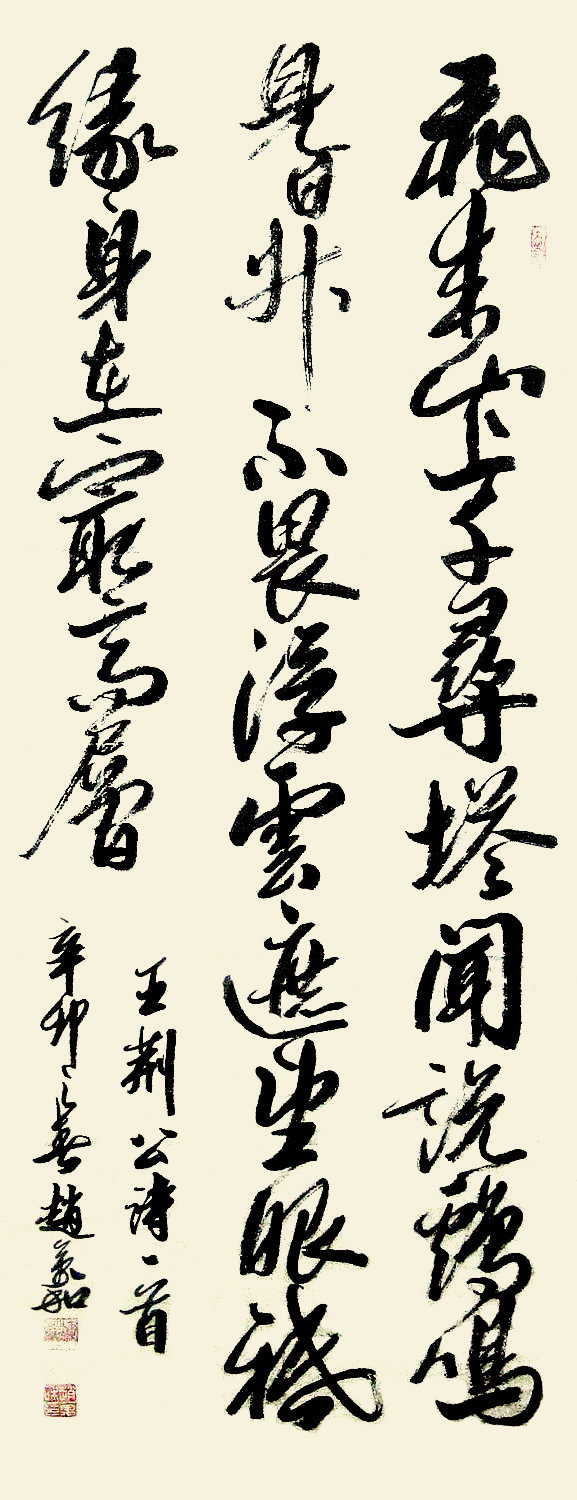 飛來山上千尋塔聞說鷄鳴
見日升不畏浮雲遮望眼祗
緣身在最高層
王荊公詩一首
辛卯之春趙